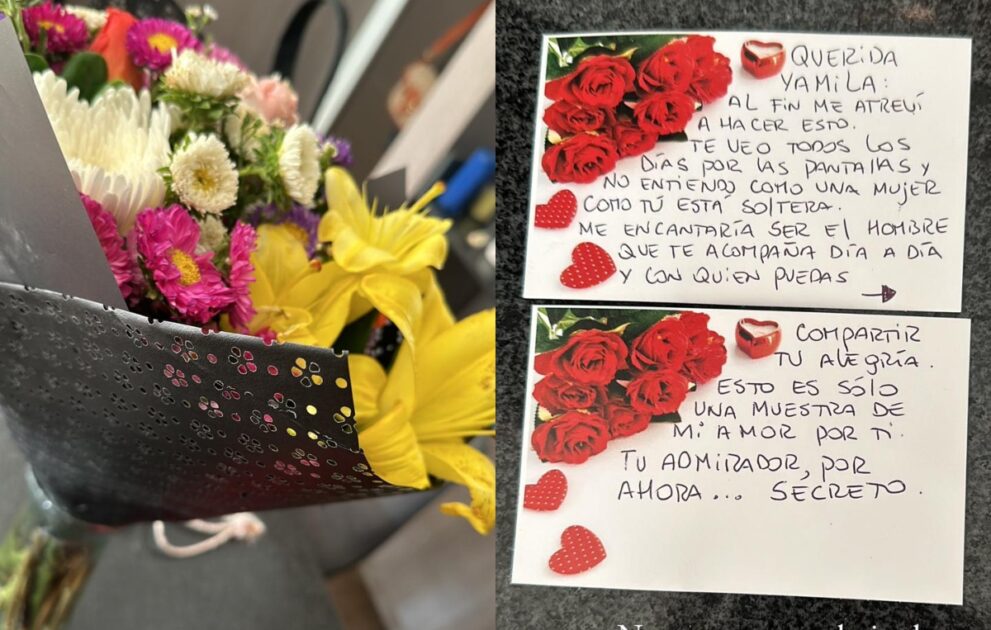 QUERIDA
YAMILA:
AL FIN ME ATREVÍ
A HACER ESTO.
TE VEO TODOS LOS
DÍAS POR LAS PANTALLAS Y
NO ENTIENDO COMO UNA MUJER
COMO TÚ ESTÁ SOLTERA.
ME ENCANTARÍA SER EL HOMBRE
QUE TE ACOMPAÑA DÍA A DÍA
Y CON QUIEN PUEDAS
COMPARTIR
TU ALEGRÍA.
ESTO ES SÓLO
UNA MUESTRA DE
MI AMOR POR TI.
TU ADMIRADOR, POR
AHORA... SECRETO.